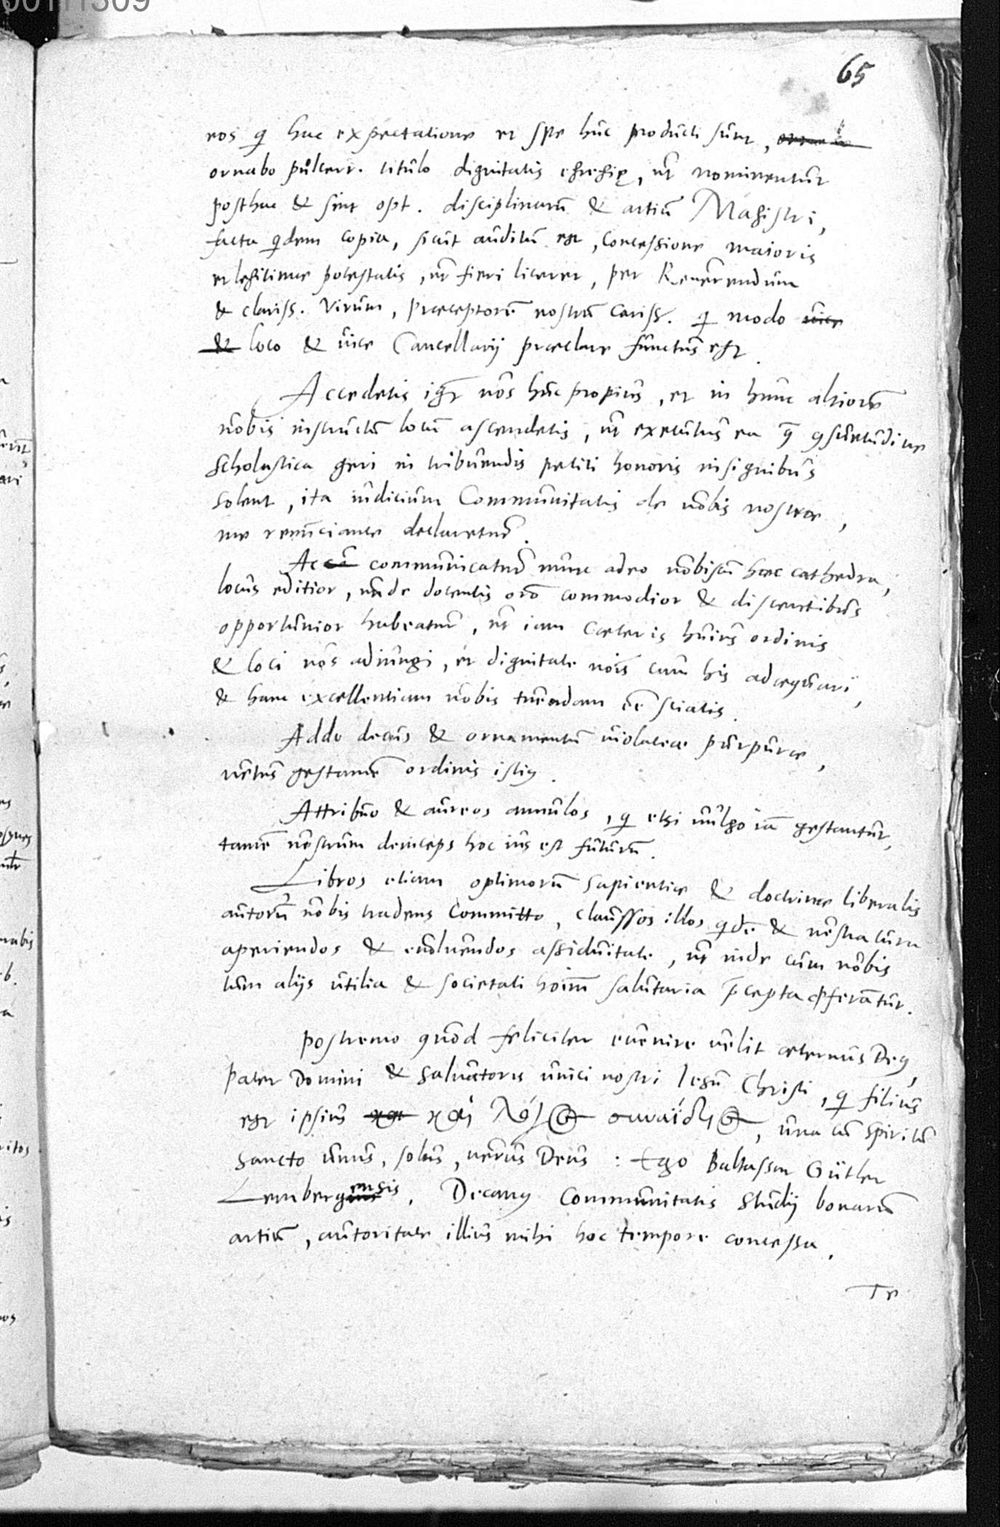 65
eos q̄ hac expectatione et spe huc producti sunt,
ornabo pulcerr. titulo dignitatis egregiæ, ut nominentur
posthac & sint opt. disciplinarū & artiū Magistri,
facta qdem copia, sicut auditū est, concessione maioris
et legitimæ potestatis, ut fieri liceret, per Reuerendum
& clariss. Virum, Præceptorē nostrū Cariss. q̄ modo vice
& loco & uice Cancellarij præclare functus est.
Accedetis igr̄ uos huc propius, et in hunc altiorē
uobis instructū locū ascendetis, ut executus ea q̄ 9suetudine
scholastica geri in tribuendis petiti honoris insignibus
solent, ita iudicium Communitatis de uobis nostræ,
me renunciante declaretur.
Ac communicatur nunc adeo uobiscū hæc cathedra,
locus editior, unde docentis orō commodior & discentibus
opportunior habeatur, ut iam cæteris huius ordinis
& loci uos adiungi, et dignitate uōs cum his adæquari,
& hanc excellentiam uobis tuendam eē sciatis.
Addo decus & ornamentū uiolaceæ purpuræ,
uetus gestamē ordinis isti9.
Attribuo & aureos annulos, q̄ etsi uulgo iā gestantur,
tamē uestrum deinceps hoc ius est futurū.
Libros etiam optimorū sapientiæ & doctrinæ liberalis
autorū uobis tradens committo, claussos illos qdē & uestra cura
aperiendos & euoluendos assiduitate, ut inde cum uobis
tum alijs utilia & societati hoīm salutaria p̄cepta p̄ferātur.
Postremo quod feliciter euenire uelit æternus De9,
Pater Domini & Saluatoris unici nostri Iesu Christi, q̄ filius
est ipsius καὶ λόγος συναΐδιος, una cū spiritu
sancto unus, solus, uerus Deus : Ego Baltassar Gütler
Lembergensis, Decan9 Communitatis studij bonarū
artiū, autoritate illius mihi hoc tempore concessa,
Te